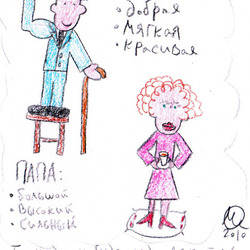 • добрая
• мягкая
• красивая
ПАПА:
• БОЛЬШОЙ
• ВЫСОКИЙ
• СИЛЬНЫЙ
2010